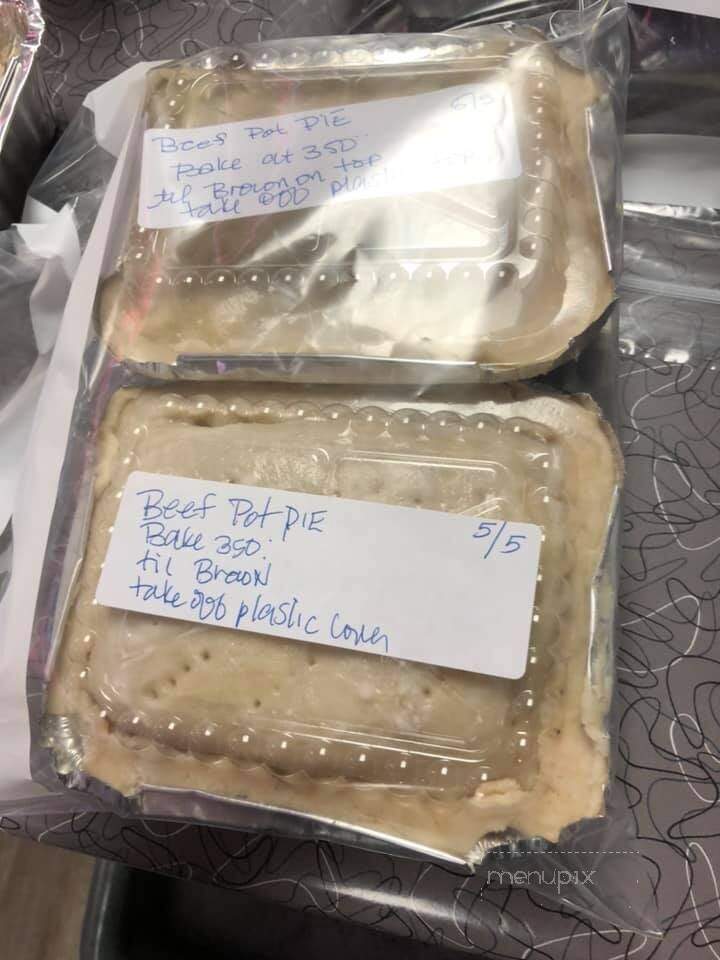 Beef Pot PIE
Bake at 350.
til Brown on top
take off plastic
Beef Pot PIE 5/5
Bake 350.
til Brown
take off plastic cover
menupix